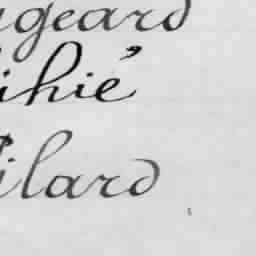 ugeard
ihié
ilard